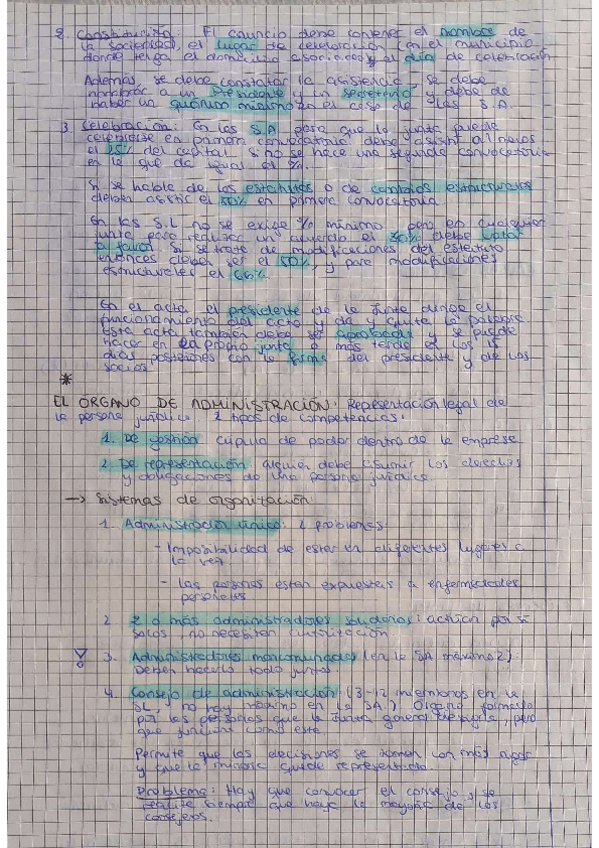 2. Constitución: El anuncio debe contener el nombre de
la sociedad, el lugar de celebración (en el municipio
donde tenga el domicilio a sociedad) y el día de celebración
Además, se debe constatar la asistencia, se debe
nombrar a un Presidente y un secretario y debe de
haber un quórum mínimo en el caso de las S.A.
3. Celebración: En las S.A para que la junta pueda
celebrarse en primera convocatoria debe asistir al menos
el 25% del capital si no se hace una segunda convocatoria
en la que da igual el %.
Si se habla de los estatutos o de cambios estructurales
deben asistir el 50% en primera convocatoria
En las S.L no se exige % mínimo pero en cualquier
junta para realizar un acuerdo el 30% debe votar
a favor. Si se trata de modificaciones del estatuto
entonces deber ser el 50%, y para modificaciones
estructurales el 66%
En el acta, el presidente de la Junta dirige el
funcionamiento del acto y da y quita la palabra
Esta acta también debe ser aprobada y se puede
hacer en la propia junta o más tarde en los 15
días posteriores con la firma del presidente y de los
socios.
*
EL ÓRGANO DE ADMINISTRACIÓN: Representación legal de
la persona jurídica. 2 tipos de competencias:
1. De gestión cúpula de poder dentro de la empresa
2. De representación alguien debe asumir los derechos
y obligaciones de una persona jurídica
→ Sistemas de organización
1. Administración único: 2 problemas:
- Imposibilidad de estar en diferentes lugares a
la vez
- Las personas están expuestas a enfermedades
personales
2. 2 o más administradores solidarios: actúan por sí
solos, no necesitan autorización
3. Administradores mancomunados (en la SA máximo 2):
Deben hacerlo todo juntos
4. Consejo de administración: (3-12 miembros en la
SL, no hay máximo en la SA.) Órgano formado
por las personas que la Junta general designa, pero
que funciona como este
Permite que las decisiones se tomen con más rigor
y que la minoría quede representada.
Problema: Hay que convocar el consejo y se
realiza siempre que haya la mayoría de los
consejeros.